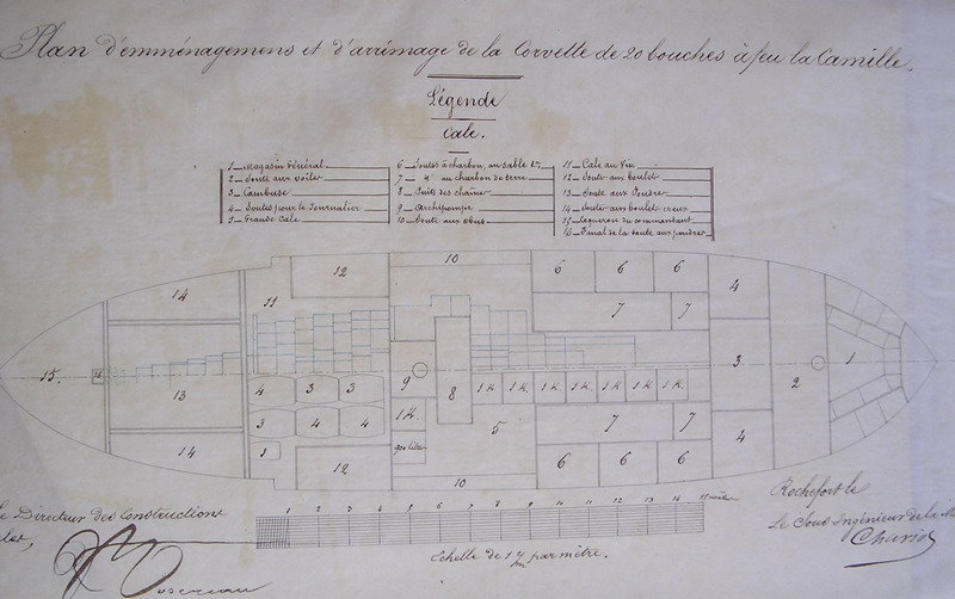 Plan d'emménagemens et d'arrimage de la Corvette de 20 bouches à feu la Camille.
Légende
Cale.
1_ Magasin Général
2_ Soute aux voiles
3_ Cambuse
4_ Soutes pour le Journalier
5_ Grande Cale
6_ Soutes à charbon, au sable &a
7_ d° au charbon de terre
8_ Puits des chaînes
9_ Archipompe
10_ Soute aux obus
11_ Cale au Vin
12_ Soute aux boulets
13_ Soute aux Poudres
14_ Soute aux boulets creux
15_ Coqueron du commandant
16_ Fanal de la soute aux poudres
10
12 6 6 6
14 11 4
7 7
15. 16 13 9 8 3 2 1
4 3 3 1 K. 1 K. 1 K. 1 K. 1 K. 1 K. 1 K.
3 4 4 1 K. 5 7 7
14 3 900 litres 4
12 6 6 6
10
1 2 3 4 5 6 7 8 9 10 11 12 13 14 15 mètres
Echelle de 1 c/m par mètre.
Le Directeur des Constructions
Rochefort le
Le Sous Ingénieur de la